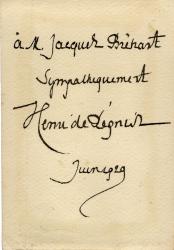 à M. Jacques Bréhart
Sympathiquement
Henri de Régnier
Juin 1929